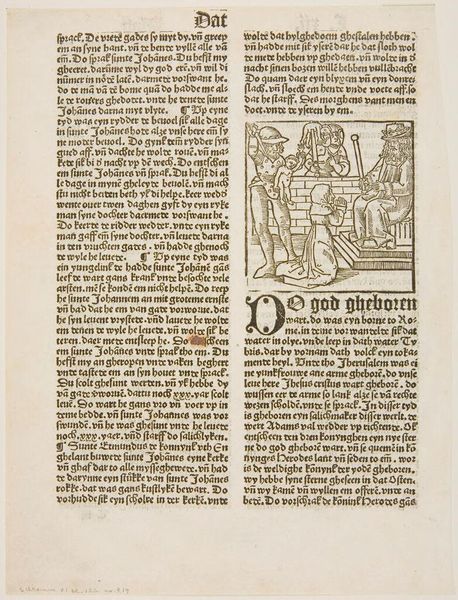 Dat
sprack. De vrete gades sy myt dy. vn̄ greep
em an syne hant. vn̄ te hente vyllē alle van
em. Do sprak sunte Johānes. Du hefst my
gheeret. darūme wyl dy god erē. vn̄ wil di
nūmer in nôtē latē. darmete vorswant he.
do te mā vā tē home quā do hadde me al
le te rouers ghedotet. vn̄ te he tenete sunte
Johānes darna myt vlyte. ¶ Up eyne
tyd was eyn rydder te beuoel sik alle dage
in sunte Johānes hôte alze vnse here em sy
ne moter beuol. Do gynk tem rydder syn
gud aff. vn̄ dachte he wolte rouē. vn̄ mak
kete sik bi ts nacht vp dē wech. Do entscheen
em sunte Johānes vn̄ sprak. Du hefst di al
le dage in mynē gheleyte beuolē. vn̄ mach
stu nicht beiten beth yk di helpe. keer wedder
wente ouer twen daghen gyft dy eyn ryke
man syne dochter daermete vorswant he.
Do keerte te ridder wedder. vn̄ te eyn ryke
man gaff em syne dochter. vn̄ leuete darna
in ten vruchten gades. vn̄ hadde ghenoch
te wyle he leuete. ¶ Up eyne tyd was
ein yungelink te hadde sunte Johānē gās
leef te wart gans krank vn̄ te besochte vele
arsten. mē se kondē em nicht helpē. Do reep
he sunte Johannem an mit groteme ernste
vn̄ bad dat he em van gade vorworue. dat
he syn leuent vryftete. vn̄ leuete he wolte
em tenen te wyle he leuete. vn̄ wolte sik be
teren. daer mete entsleep he. Do entscheen
em sunte Johānes vn̄ te sprak tho em. Du
hefst my an gheropen vn̄ te vaken beghert
vn̄ te tastete em an syn houet vn̄ te sprack.
Du scolt ghesunt werten. vn̄ yk hebbe dy
van gate vorworuē. dattu noch xxx. yar scolt
leuē. Do wart he gans vro vn̄ voer vp in
teme bedde. vn̄ sunte Johānes was vor
swunden. vn̄ he was ghesunt vn̄ te he leuete
noch. xxx. yaer. vn̄ d starff do salichlyken.
¶ Sunte Etmundus te konnynk vth En
ghelant buwete sunte Johānē eyne kerke
vn̄ ghaf dar to alle mysseghewete. vn̄ had
te darynne eyn stücke van sunte Johānes
rokke. dat was gans kustlykē bewart. Do
vorhudde sik eyn scholre in ter kerkē. vn̄ te
wolte dat hylghedoem ghestalen hebben.
vn̄ hadde mit sik yserē dar he dat sloth wol
te mete hebben vp ghedaen. vn̄ wolte in ts
nacht sinen bozen willē hebben vullēbracht
Do quam daer eyn blyxem vn̄ eyn donre
slach. vn̄ sloech em hente vn̄ te voete aff. so
dat he starff. Des morghens vant men en
doet. vn̄ te te yseren by em.
DO god gheboren
wart. do was eyn borne to Ro-
me. in teme vor wandelte sik dat
water in olye. vn̄ te leep in dath water Ty
bris. dar by vornam dath volck eyn tokā
mente heyl. Vn̄ te tho Jherusalem was ei
ne yunkfrouwe ane arme gheborē. do vnse
leue here Jhesus cristus wart gheborē. do
wussen eer te arme so lank alze se vā rechte
wesen scholdē. vn̄ te se sprack. In disser tyd
is gheboren eyn salichmaker disser werlt. te
wert Adams val wedder vp richtente. Ok
entscheen ten dren konynghen eyn nye ster
ne do god ghebore wart. vn̄ se quemē in kō
nynges Herodes lant vn̄ seden to em. wor
is de weldighe kōnynk ter yodē gheborē.
wy hebbe syne sterne gheseen in dat Osten.
vn̄ wy kamē vn̄ wyllen em offerē. vn̄ te an
beten. Do vorschrak te kōnink Herotes gās